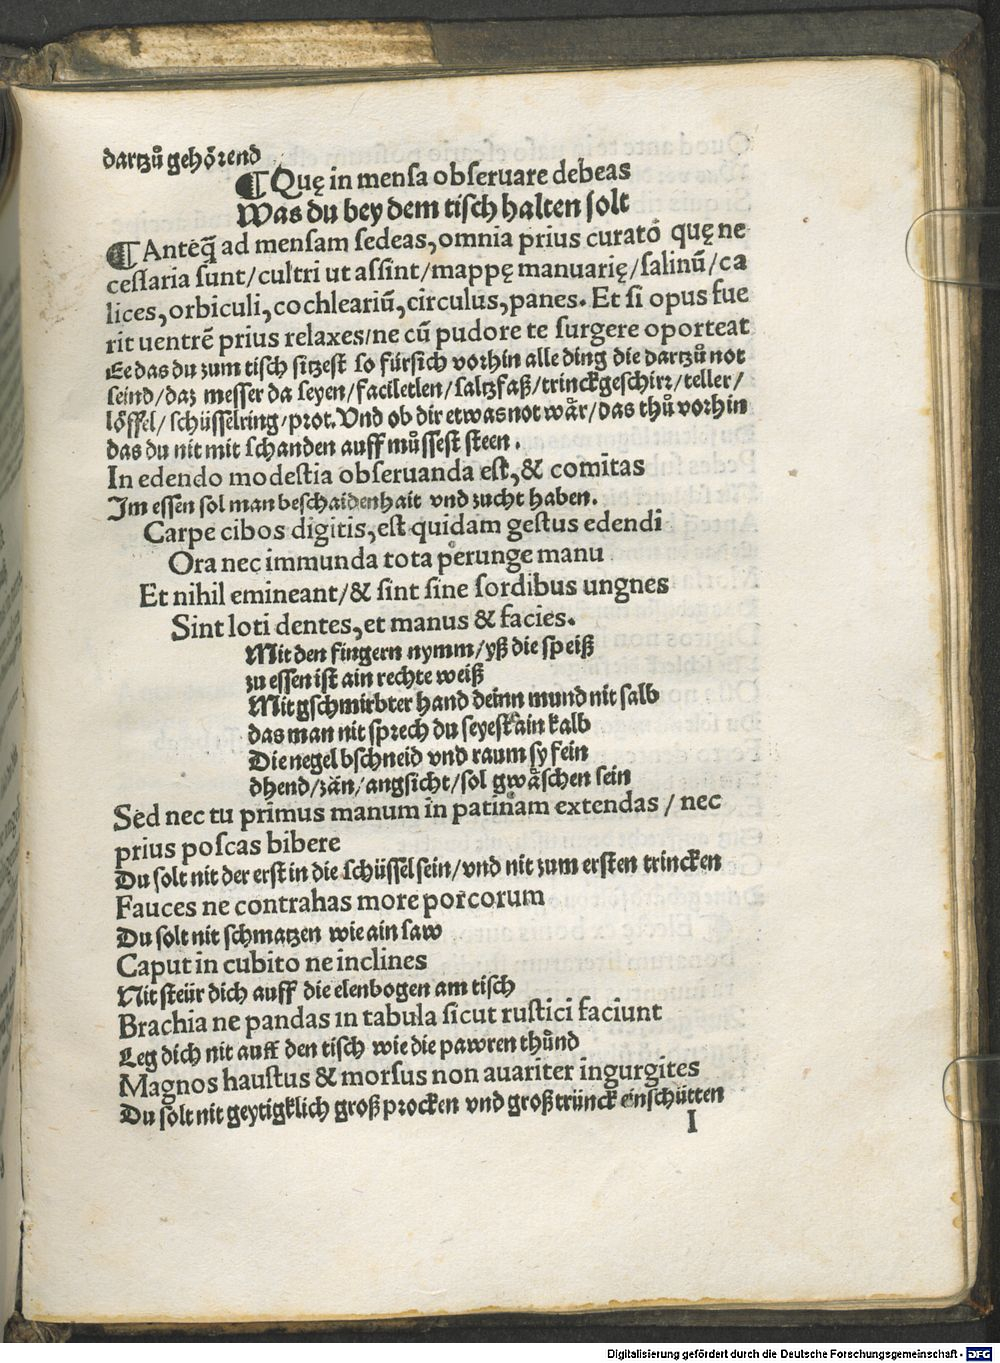 dartzů gehörend
¶ Quę in mensa obseruare debeas
Was du bey dem tisch halten solt
¶ Anteq̃ ad mensam sedeas, omnia prius curato quę ne
cessaria sunt/cultri ut assint/mappę manuarię/salinū/ca
lices, orbiculi, cochleariū, circulus, panes. Et si opus fue
rit uentrē prius relaxes/ne cū pudore te surgere oporteat
Ee das du zum tisch sitzest so fürsich vorhin alle ding die dartzů not
seind/daz messer da seyen/faciletlen/saltzfaß/trinckgeschirr/teller/
löffel/schüsselring/prot. Vnd ob dir etwas not wår/das thů vorhin
das du nit mit schanden auff můssest steen.
In edendo modestia obseruanda est, & comitas
Im essen sol man beschaidenhait vnd zucht haben.
Carpe cibos digitis, est quidam gestus edendi
Ora nec immunda tota perunge manu
Et nihil emineant/& sint sine sordibus ungnes
Sint loti dentes, et manus & facies.
Mit den fingern nymm/yß die speiß
zu essen ist ain rechte weiß
Mit gschmirbter hand deinn mund nit salb
das man nit sprech du seyest ain kalb
Die negel bschneid vnd raum sy fein
dhend/zän/angsicht/sol gwäschen sein
Sed nec tu primus manum in patinam extendas / nec
prius poscas bibere
Du solt nit der erst in die schüssel sein/vnd nit zum ersten trincken
Fauces ne contrahas more porcorum
Du solt nit schmatzen wie ain saw
Caput in cubito ne inclines
Nit steür dich auff die elenbogen am tisch
Brachia ne pandas in tabula sicut rustici faciunt
Leg dich nit auff den tisch wie die pawren thůnd
Magnos haustus & morsus non auariter ingurgites
Du solt nit geytigklich groß procken vnd groß trünck einschütten
I
Digitalisierung gefördert durch die Deutsche Forschungsgemeinschaft - DFG